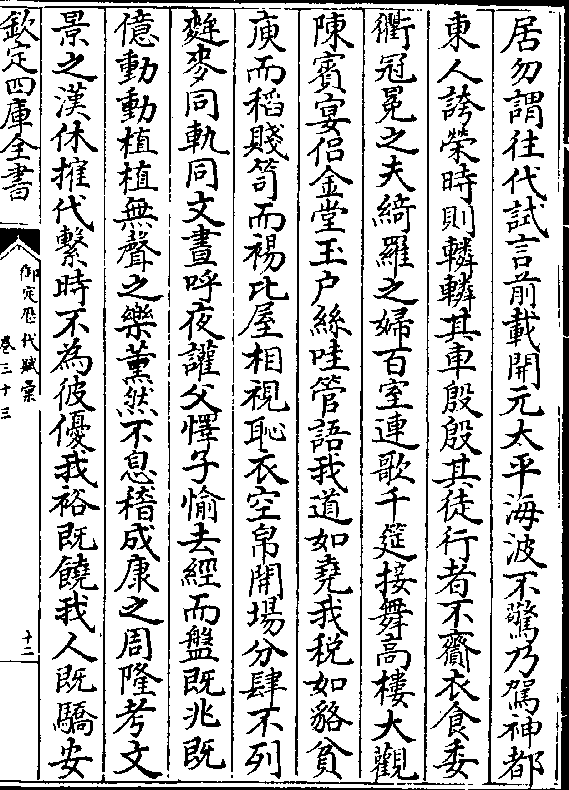 居勿謂往代試言前載開元太平海波不驚乃駕神都
東人誇榮時則轔轔其車殷殷其徒行者不齎衣食委
衢冠冕之夫綺羅之婦百室連歌千筵接舞高樓大觀
陳賓宴侶金堂玉户絲哇管語我道如堯我税如貉貧
庾而稻賤笥而裼比屋相視恥衣空帛開場分肆不列
麰麥同軌同文晝呼夜讙父懌子愉去經而盤既兆既
億動動植植無聲之樂薫然不息稽成康之周隆考文
景之漢休搉代繫時不為彼優我裕既饒我人既驕安
欽定四庫全書
御定歷代賦彙
卷三十三
十二